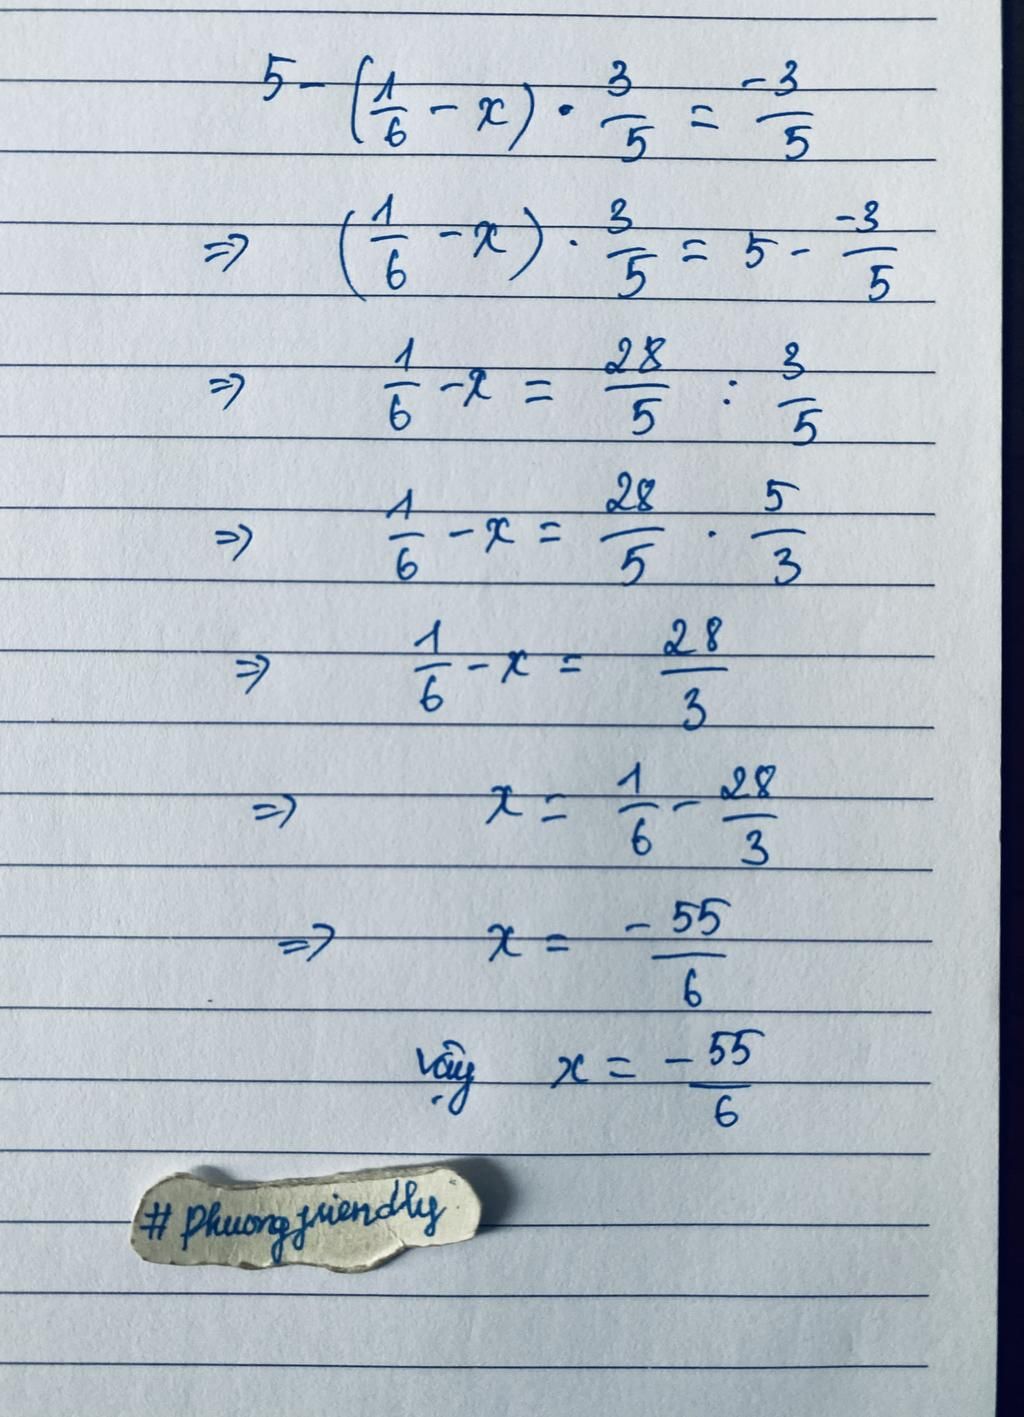 5 - (1/6 - x) · 3/5 = -3/5
=> (1/6 - x) · 3/5 = 5 - -3/5
=> 1/6 - x = 28/5 : 3/5
=> 1/6 - x = 28/5 · 5/3
=> 1/6 - x = 28/3
=> x = 1/6 - 28/3
=> x = -55/6
Vậy x = -55/6
# phuongfriendly